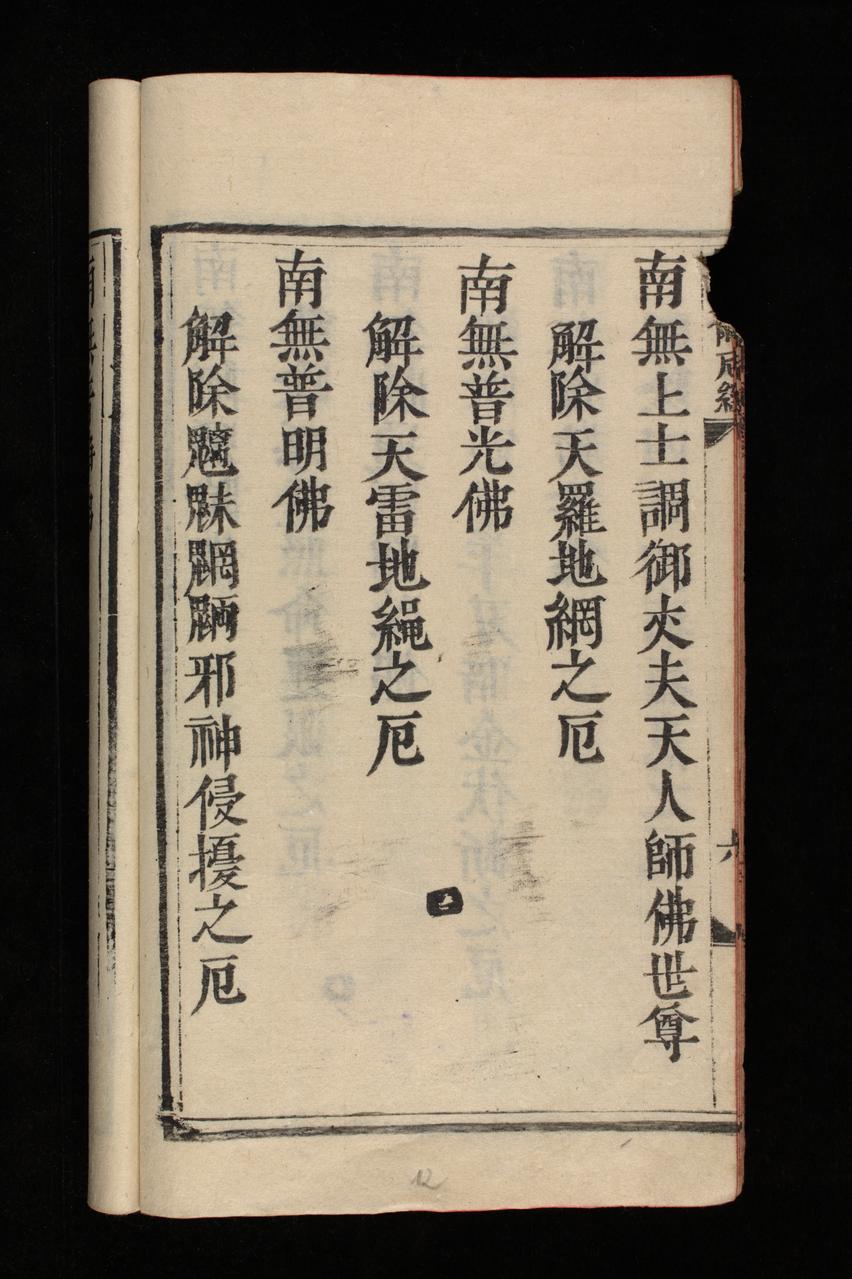 南無上士調御丈夫天人師佛世尊
解除天羅地網之厄
南無普光佛
解除天雷地繩之厄
南無普明佛
解除魑魅魍魎邪神侵擾之厄
12